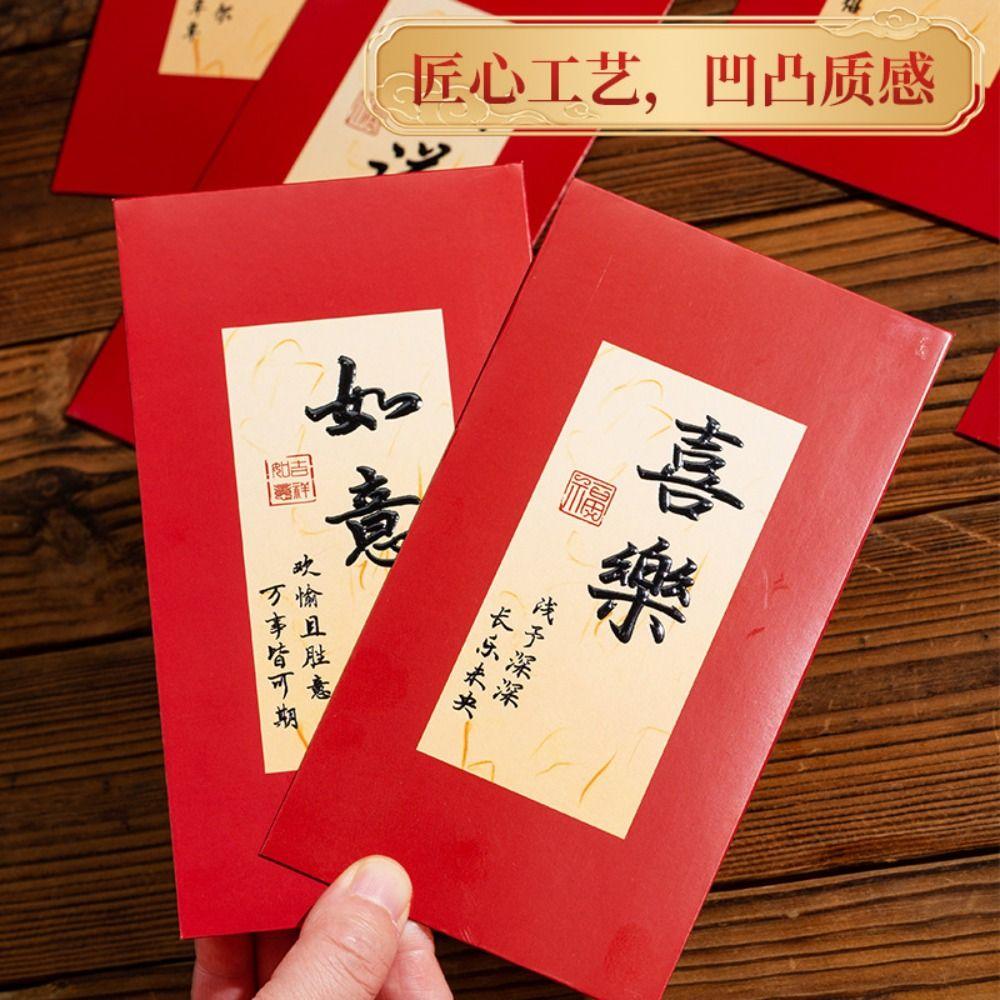 匠心工艺，凹凸质感
如意
吉祥如意
欢愉且胜意
万事皆可期
喜樂
福
浅予深深
长乐未央